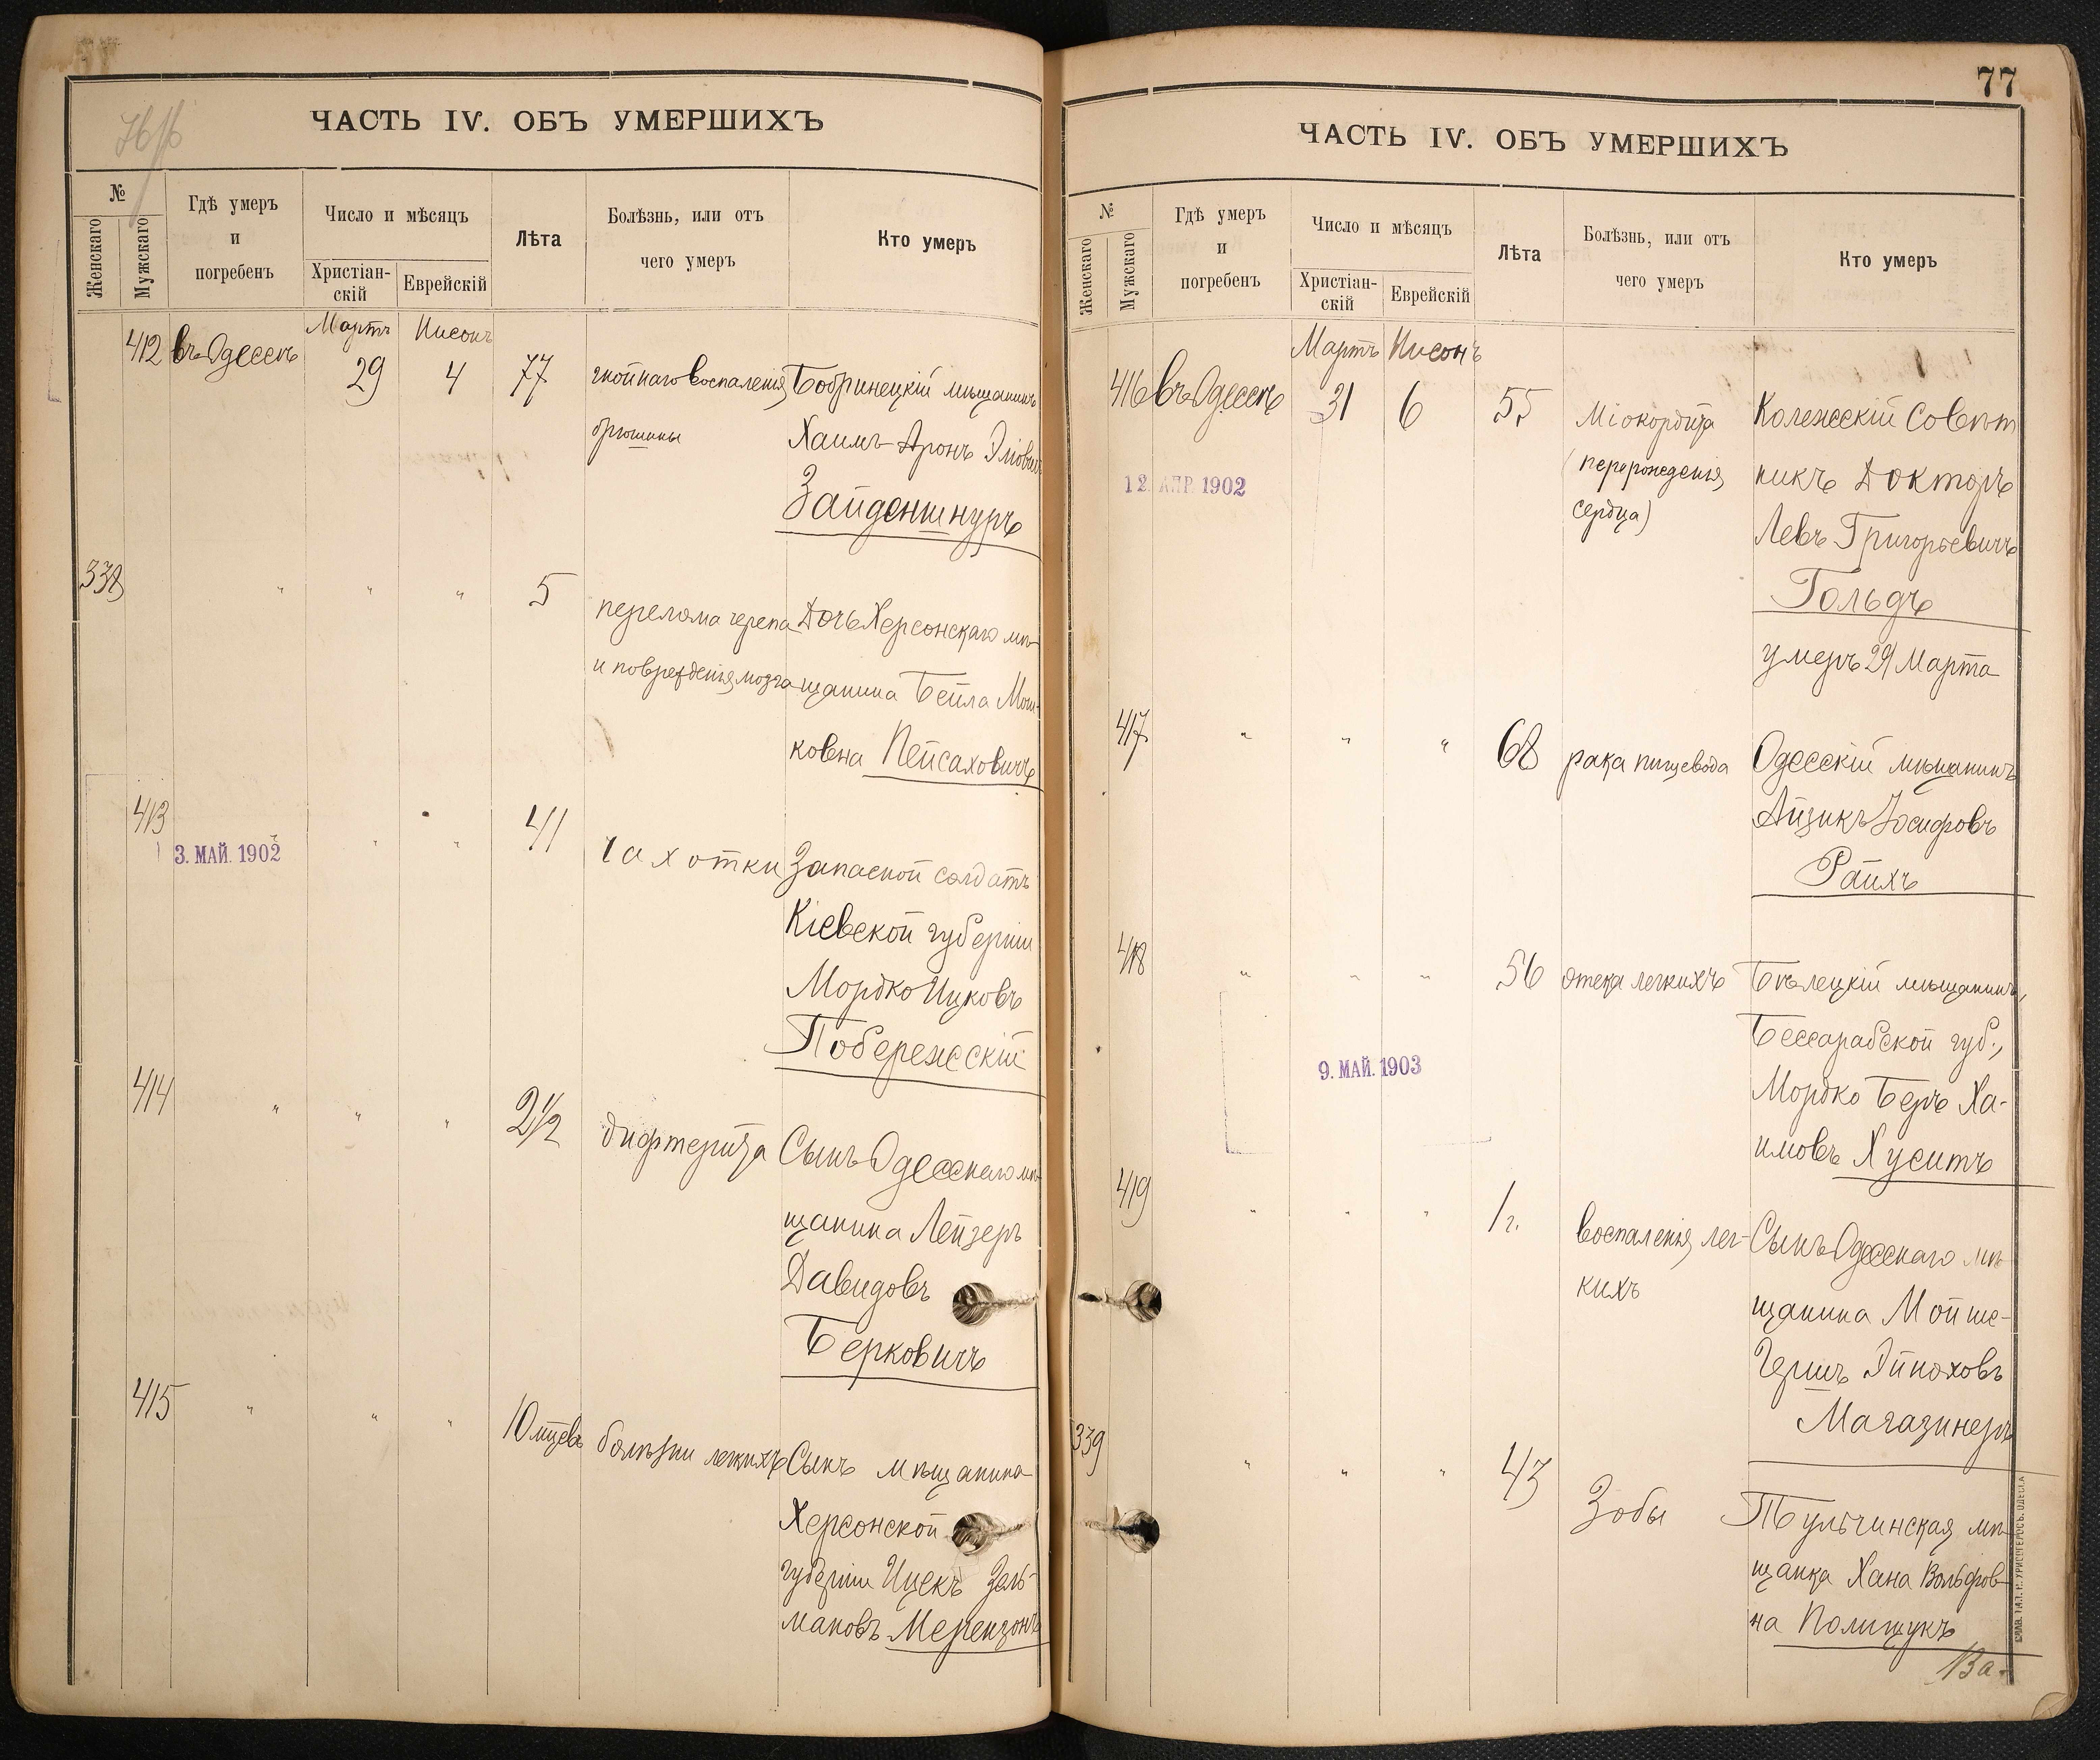 76 об
ЧАСТЬ IV. ОБЪ УМЕРШИХЪ
№
Женскаго
Мужскаго
Гдѣ умеръ
и
погребенъ
Число и мѣсяцъ
Христіан-
скій
Еврейскій
Лѣта
Болѣзнь, или отъ
чего умеръ
Кто умеръ
Мартъ Нисонъ
412 въ Одессѣ 29 4 77 гнойнаго воспаленія Бобринецкій мѣщанинъ
брюшины Хаимъ-Аронъ Эліовичъ
Зайденшнуръ
338 " " " 5
перелома черепа Дочь Херсонскаго мѣ-
и поврежденія мозга щанина Бейла Мош-
ковна Пейсаховичъ
413 " " " 41
3. МАЙ. 1902
чахотки Запасной солдатъ
Кіевской губерніи
Мордко Ицковъ
Побережскій
414 " " " 2½ дифтерита Сынъ Одесскаго мѣ-
щанина Лейзеръ
Давидовъ
Берковичъ
415 " " " 10 мцевъ болѣзни легкихъ Сынъ мѣщанина
Херсонской
губерніи Ицекъ Зель-
мановъ Мерензонъ
77
ЧАСТЬ IV. ОБЪ УМЕРШИХЪ
№
Женскаго
Мужскаго
Гдѣ умеръ
и
погребенъ
Число и мѣсяцъ
Христіан-
скій
Еврейскій
Лѣта
Болѣзнь, или отъ
чего умеръ
Кто умеръ
Мартъ Нисонъ
416 въ Одессѣ 31 6 55 Міокордита Колежскій Совѣт
12. АПР. 1902
(перерожденія никъ Докторъ
сердца) Левъ Григорьевичъ
Гольдъ
умеръ 29 Марта
417 " " " 68 рака пищевода Одесскій мѣщанинъ
Айзикъ Іосифовъ
Райхъ
418 " " " 56 отека легкихъ Бѣлецкій мѣщанинъ,
Бессарабской губ.,
9. МАЙ. 1903
Мордко Беръ Ха-
имовъ Хуситъ
419 " " " 1 г. воспаленія лег- Сынъ Одесскаго мѣ
кихъ щанина Мойше-
Гершъ Эйноховъ
Магазинеръ
339 " " " 43 Зобы Тульчинская мѣ-
щанка Хана Вольфов-
на Полищукъ
За-